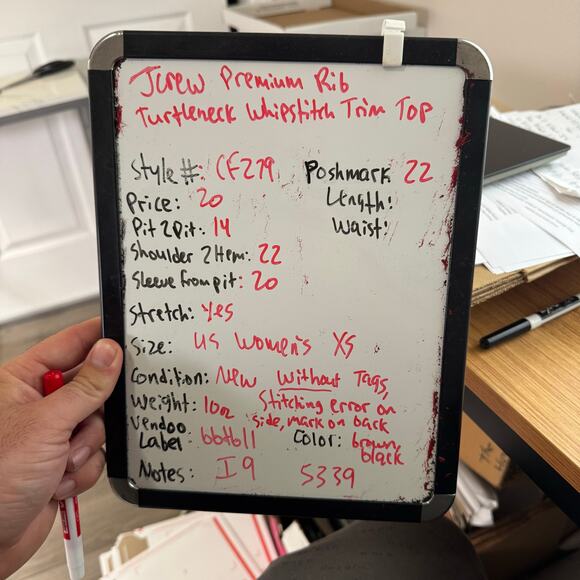 Jcrew Premium Rib
Turtleneck Whipstitch Trim Top
Style #: CF279 Poshmark 22
Price: 20 Length:
Pit 2 Pit: 14 Waist:
Shoulder 2 Hem: 22
Sleeve from pit: 20
Stretch: Yes
Size: US Women's XS
Condition: New Without Tags,
Weight: 10oz Stitching error on
side, mark on back
Vendoo
Label: bbtb11 Color: brown,
black
Notes: I9 5339